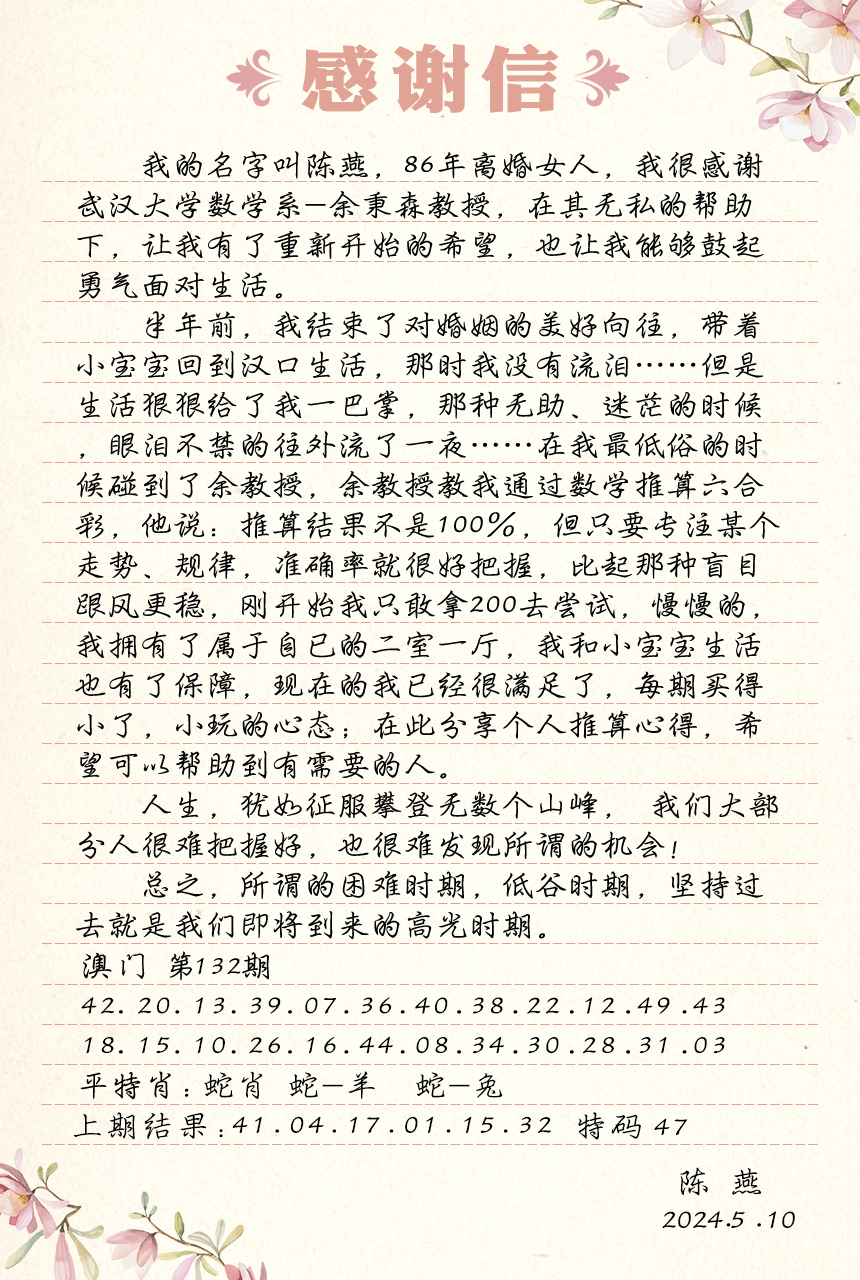 感谢信
我的名字叫陈燕，86年离婚女人，我很感谢
武汉大学数学系—余秉森教授，在其无私的帮助
下，让我有了重新开始的希望，也让我能够鼓起
勇气面对生活。
半年前，我结束了对婚姻的美好向往，带着
小宝宝回到汉口生活，那时我没有流泪……但是
生活狠狠给了我一巴掌，那种无助、迷茫的时候
，眼泪不禁的往外流了一夜……在我最低俗的时
候碰到了余教授，余教授教我通过数学推算六合
彩，他说：推算结果不是100%，但只要专注某个
走势、规律，准确率就很好把握，比起那种盲目
跟风更稳，刚开始我只敢拿200去尝试，慢慢的，
我拥有了属于自已的二室一厅，我和小宝宝生活
也有了保障，现在的我已经很满足了，每期买得
小了，小玩的心态；在此分享个人推算心得，希
望可以帮助到有需要的人。
人生，犹如征服攀登无数个山峰， 我们大部
分人很难把握好，也很难发现所谓的机会！
总之，所谓的困难时期，低谷时期，坚持过
去就是我们即将到来的高光时期。
澳门 第132期
42.20.13.39.07.36.40.38.22.12.49.43
18.15.10.26.16.44.08.34.30.28.31.03
平特肖：蛇肖 蛇—羊 蛇—兔
上期结果：41.04.17.01.15.32 特码 47
陈 燕
2024.5.10